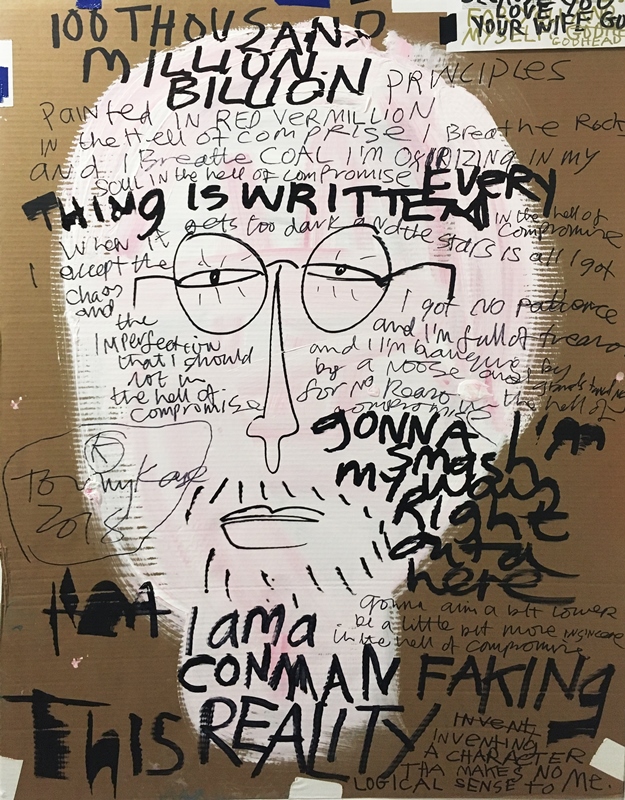 LOVE YOU
YOUR WIFE
GODHEAD
100 THOUSAND
MILLION
BILLION PRINCIPLES
PAINTED IN RED VERMILLION
IN the Hell of COMPRISE I Breathe Rock
AND I Breathe COAL I'M IN MY
SOUL IN the hell of compromise
EVERY
THING IS WRITTEN
in the hell of
compromise
When it gets too dark and the stars is all I got
I except the
chaos
and
the
Imperfection
that I should
rot in
the hell of
compromise
I got NO patience
and I'm full of
and I'm
by a NOOSE and by
for No Reason in the hell of
compromise
I'm
GONNA
smash
my way
Right
outta
here
A
Tommy Kane
2018
gonna aim a bit lower
be a little bit more insincere
in the hell of compromise
I am a
CONMAN FAKING
THIS REALITY
INVENT
INVENTING
A CHARACTER
THA MAKES NO
LOGICAL SENSE to Me.